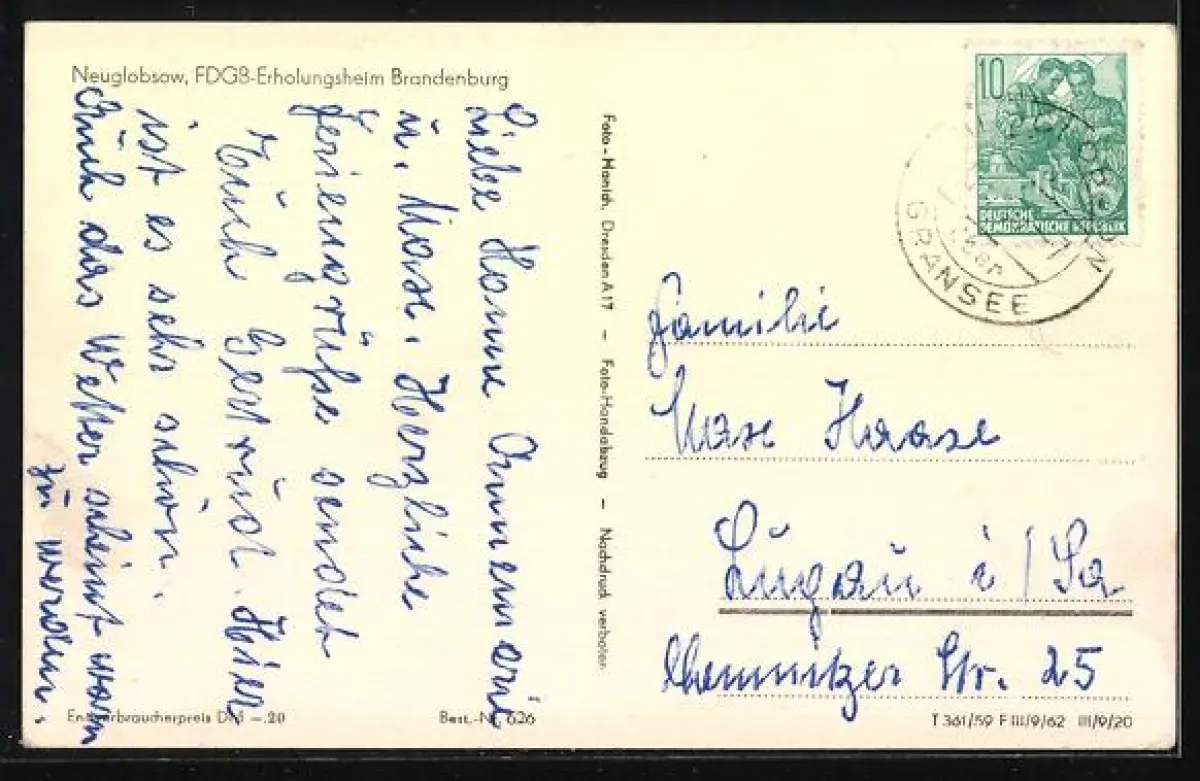 Neuglobsow, FDGB-Erholungsheim Brandenburg
Liebe Hanne
u. Max. Herzliche
Feriengrüße sendet
Euch Gertrud. Hier
ist es sehr schön.
Auch das Wetter scheint warm
zu werden.
Foto-Hanich, Dresden A 17 – Foto-Handabzug – Nachdruck verboten
10
DEUTSCHE
DEMOKRATISCHE REPUBLIK
GRANSEE
Familie
Max Haase
Lugau i/Sa
Chemnitzer Str. 25
Endverbraucherpreis DM –.20
Best.-Nr. 626
T 361/59 F III/9/62 III/9/20